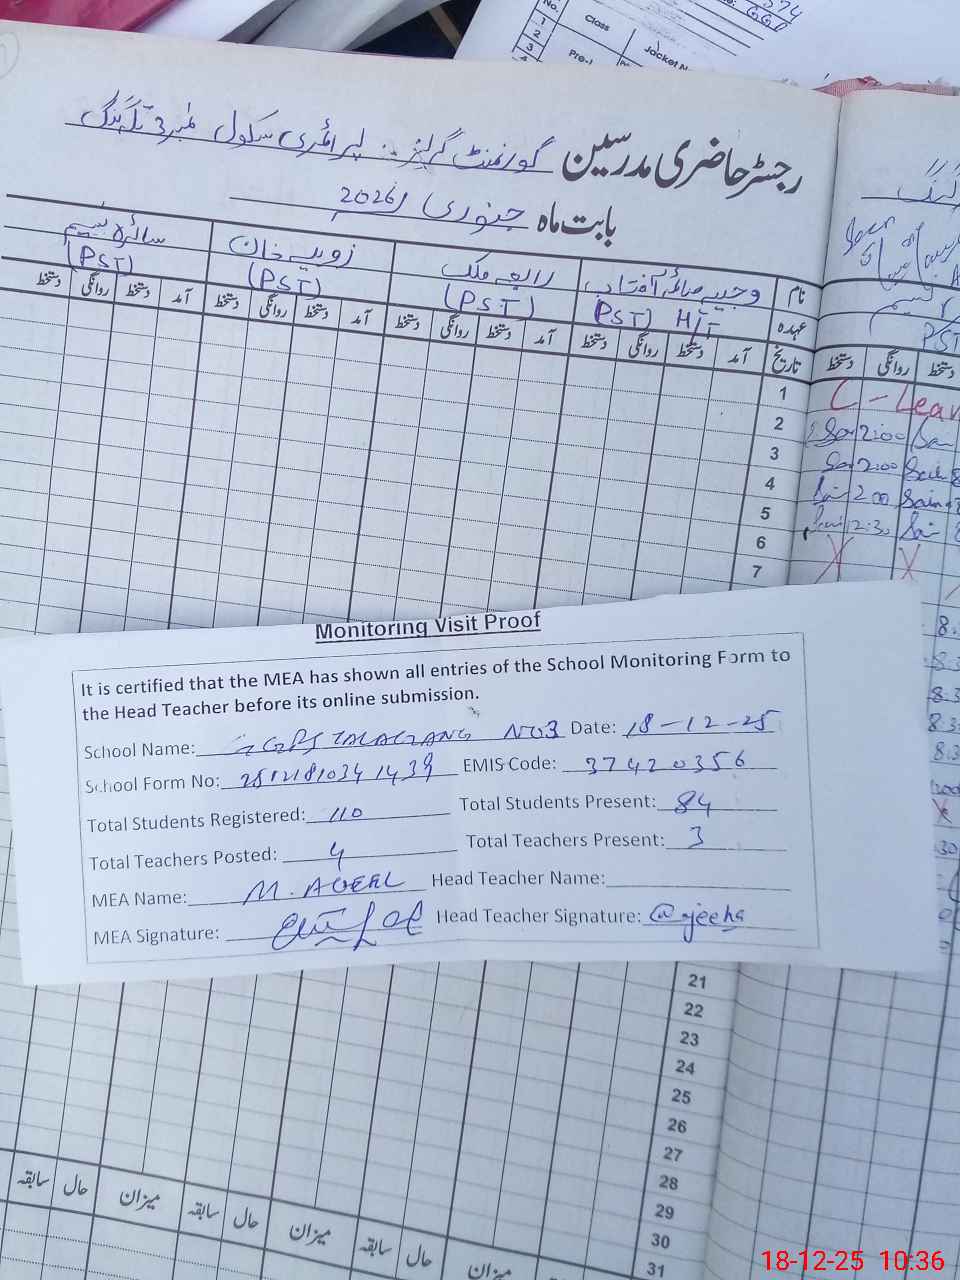 رجسٹر حاضری مدرسین گورنمنٹ گرلز پرائمری سکول نمبر 3 تلہ گنگ
بابت ماہ جنوری 2026ء
نام وجیہہ صائمہ آفتاب رابعہ ملک زوبیہ خان سائرہ نسیم
عہدہ (PST) H/T (PST) (PST) (PST)
تاریخ آمد دستخط روانگی دستخط آمد دستخط روانگی دستخط آمد دستخط روانگی دستخط آمد دستخط روانگی دستخط
1
2
3
4
5
6
7
No.
1
2
3
Class
Jacket
Pre-I
PST
دستخط روانگی دستخط
C - Leav
2:00
2:00
2 00
12:30
Monitoring Visit Proof
It is certified that the MEA has shown all entries of the School Monitoring Form to
the Head Teacher before its online submission.
School Name: GGPS TALAGANG NO3 Date: 18-12-25
School Form No: EMIS Code: 37420356
Total Students Registered: 110 Total Students Present: 84
Total Teachers Posted: 4 Total Teachers Present: 3
MEA Name: Head Teacher Name:
MEA Signature: Head Teacher Signature:
21
22
23
24
25
26
27
28
29
30
31
میزان حال سابقہ میزان حال سابقہ میزان حال سابقہ
18-12-25 10:36